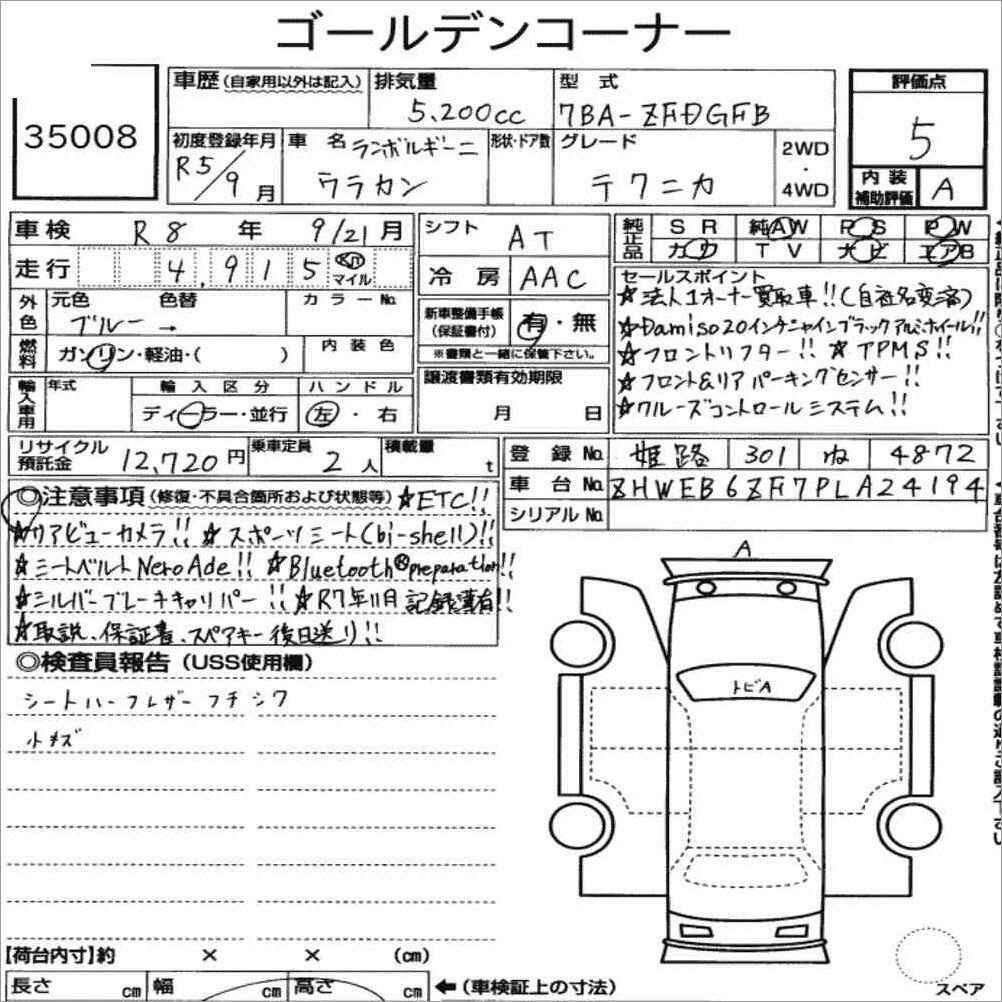 ゴールデンコーナー
35008
車歴 (自家用以外は記入) 排気量 5,200cc 型式 7BA-ZFDGFB 評価点 5
初度登録年月 R5/9月 車名 ランボルギーニ ウラカン 形状・ドア数 グレード テクニカ 2WD・4WD 内装補助評価 A
車検 R8年 9/21月
走行 4,915 Km マイル
外色 元色 ブルー → 色替 カラーNo.
燃料 ガソリン・軽油・( ) 内装色
輸入車用 年式 輸入区分 ディーラー・並行 ハンドル 左・右
シフト AT
冷房 AAC
新車整備手帳(保証書付) 有・無
※書類と一緒に保管下さい。
譲渡書類有効期限 月 日
純正品 SR 純AW PS PW
カワ TV ナビ エアB
セールスポイント
☆法人1オーナー買取車!!(自社名変済)
☆Damiso20インチシャインブラックアルミホイール!!
☆フロントリフター!! ☆TPMS!!
☆フロント&リアパーキングセンサー!!
☆クルーズコントロールシステム!!
リサイクル預託金 12,720円 乗車定員 2人 積載量 t
登録No. 姫路 301 ね 4872
車台No. ZHWEB6ZF7PLA24194
シリアルNo.
◎注意事項(修復・不具合箇所および状態等) ☆ETC!!
☆リアビューカメラ!! ☆スポーツシート(bi-shell)!!
☆シートベルトNero Ade!! ☆Bluetooth®preparation!!
☆シルバーブレーキキャリパー!! ☆R7年11月記録簿有!!
☆取説、保証書、スペアキー後日送り!!
◎検査員報告(USS使用欄)
シートハーフレザーフチシワ
小キズ
A
トビA
【荷台内寸】約 × × (cm)
長さ cm 幅 cm 高さ cm ←(車検証上の寸法)
スペア